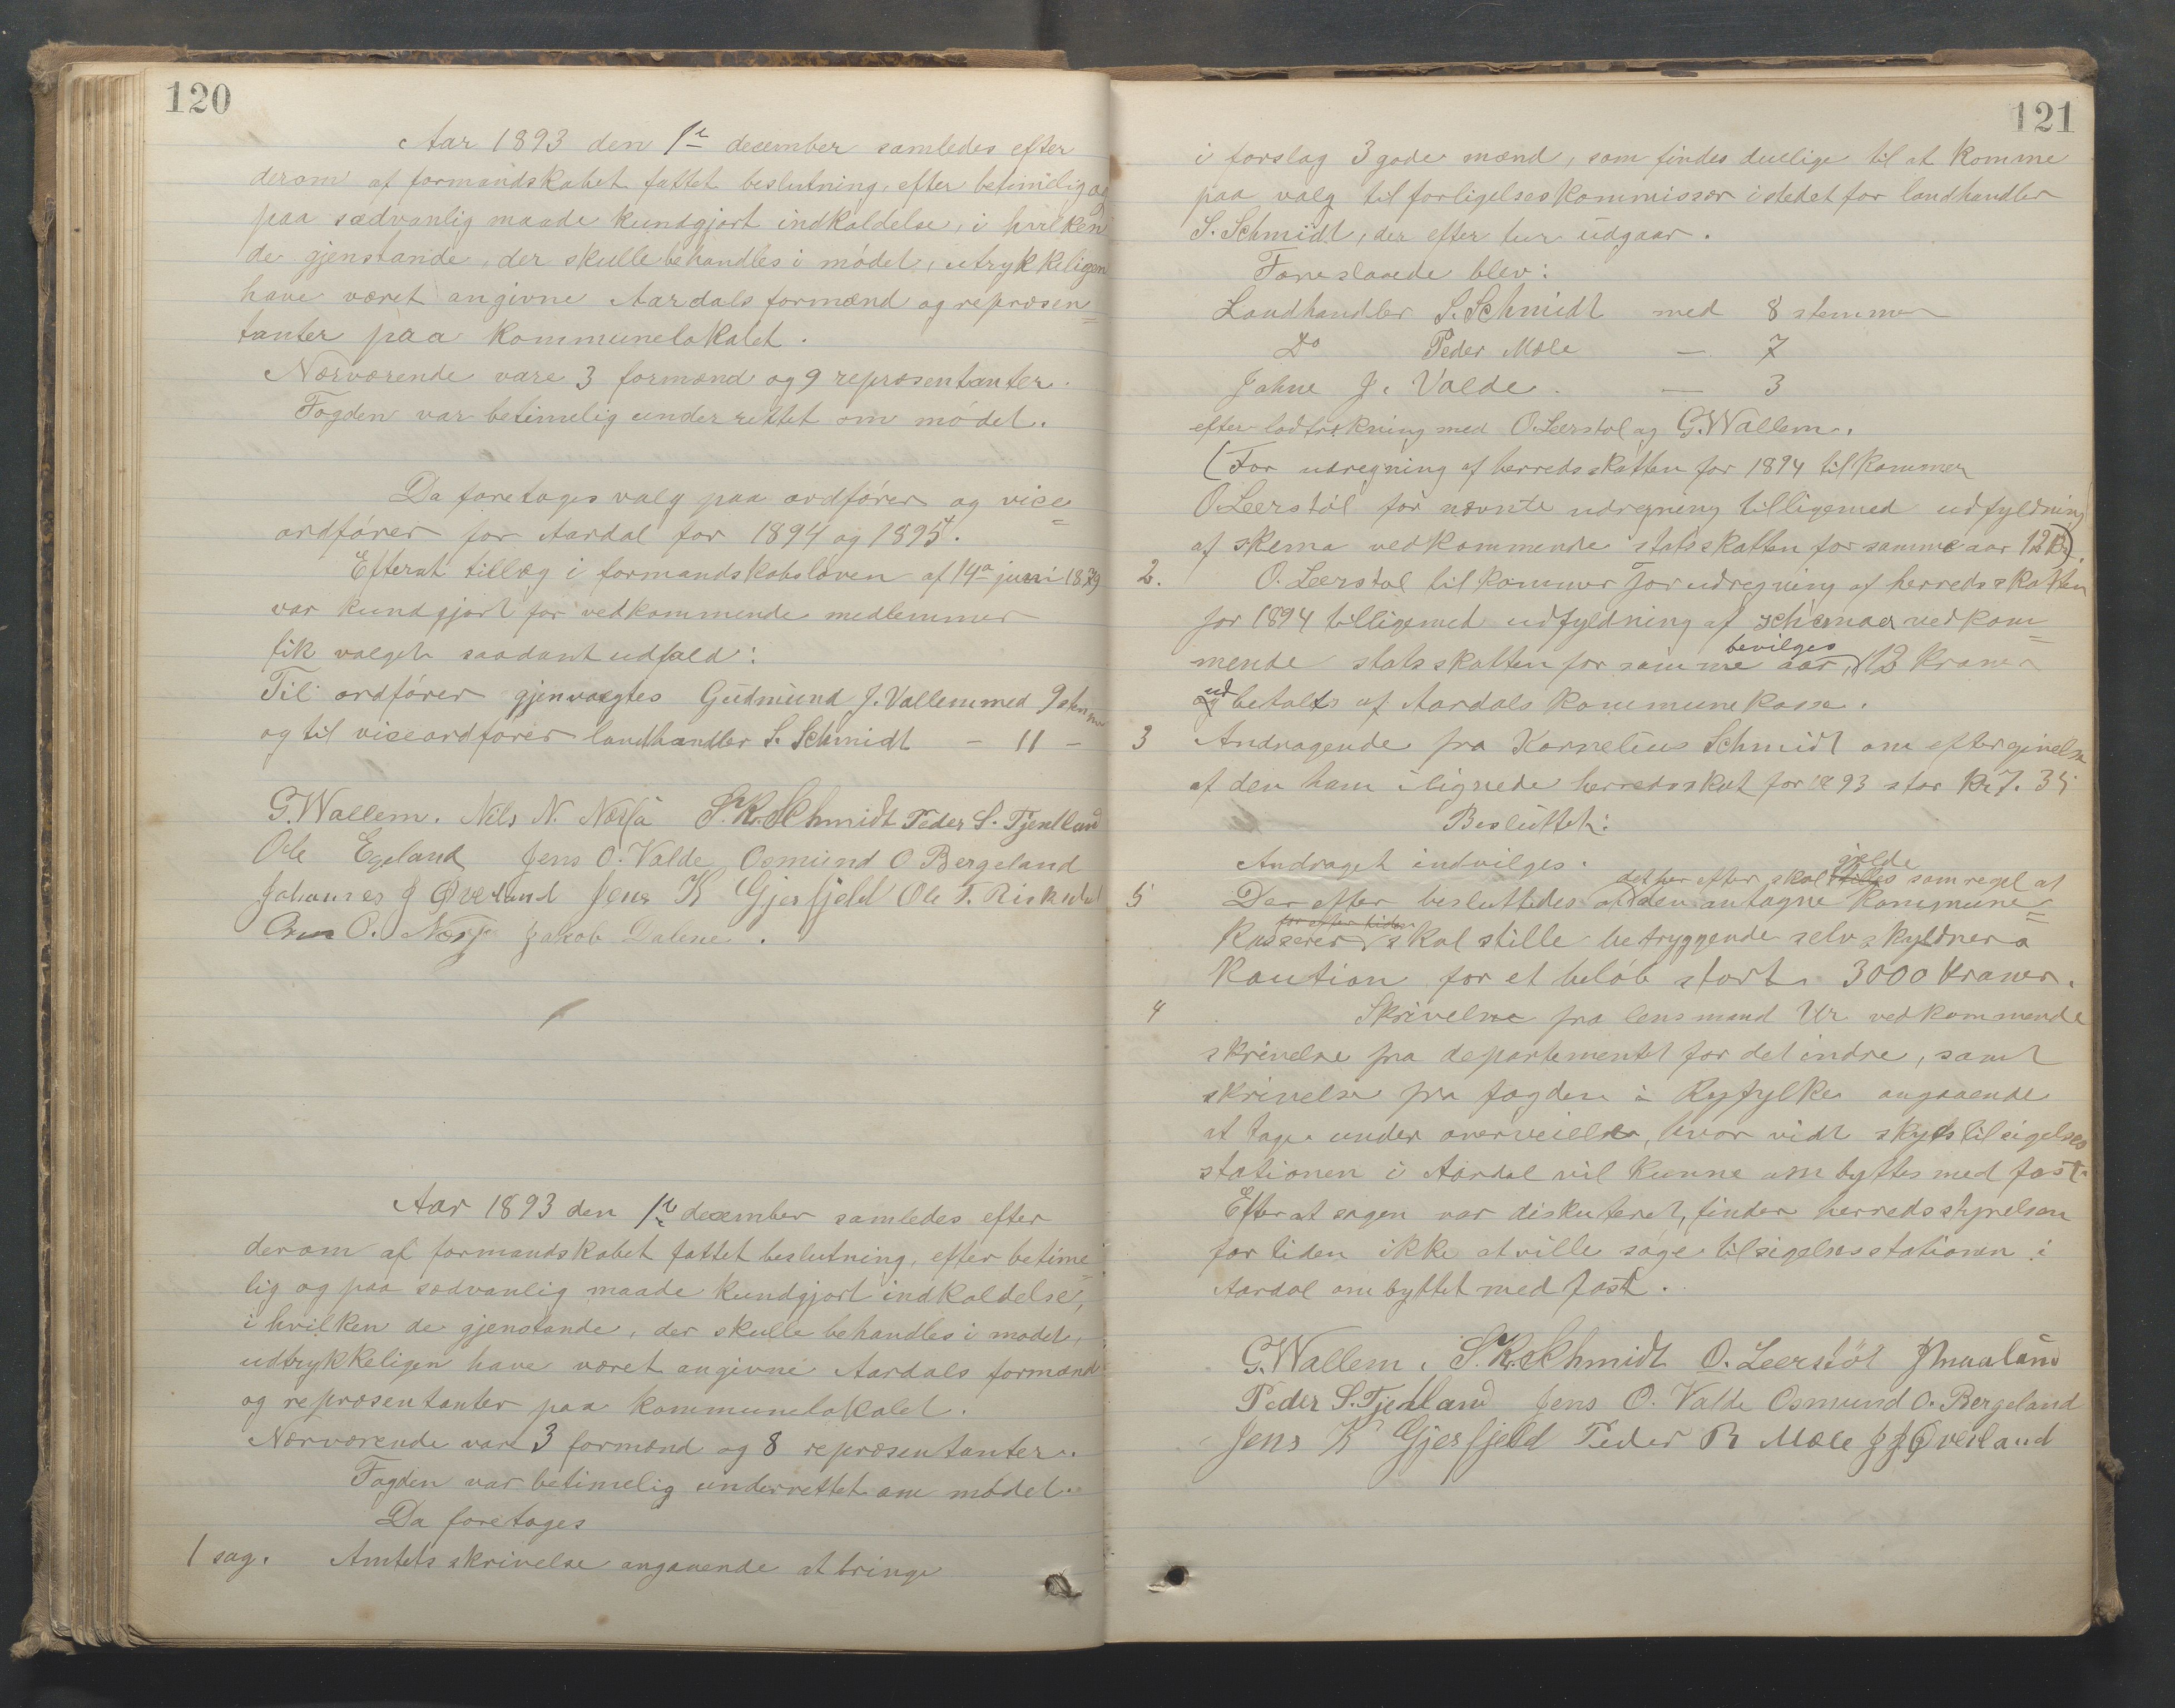 120
Aar 1893 den 1ste december samledes efter
derom af formandskabet fattet beslutning, efter betimelig og
paa sædvanlig maade kundgjort indkaldelse, i hvilken
de gjenstande, der skulle behandles i mødet, utrykkeligen
have været angivne Aardals formænd og repræsen=
tanter paa kommunelokalet.
Nærværende vare 3 formænd og 9 repræsentanter.
Fogden var betimelig underrettet om mødet.
Da foretoges valg paa ordfører og vice=
ordfører for Aardal for 1894 og 1895.
Efterat tillæg i formandskabsloven af 14de juni 1879
var kundgjort for vedkommende medlemmer
fik valget saadant udfald:
Til ordfører gjenvalgtes Gudmund J. Vallem med 9 stemmer
og til viceordfører landhandler S. Schmidt - 11 -
G. Wallem. Nils N. Næsja S. K. Schmidt Peder S. Tjentland
Ole Egeland Jens O. Valde Osmund O Bergeland
Johannes J Øverland Jens K Gjerfjeld Ole T.
O. Jakob Dalene.
Aar 1893 den 1ste december samledes efter
derom af formandskabet fattet beslutning, efter betime=
lig og paa sædvanlig maade kundgjort indkaldelse,
i hvilken de gjenstande, der skulle behandles i mødet,
udtrykkeligen have været angivne Aardals formænd
og repræsentanter paa kommunelokalet.
Nærværende vare 3 formænd og 8 repræsentanter.
Fogden var betimelig underrettet om mødet.
Da foretoges
1 sag. Amtets skrivelse angaaende at bringe
121
i forslag 3 gode mænd, som findes duelige til at komme
paa valg til forligelseskommissær istedet for landhandler
S. Schmidt, der efter tur udgaar.
Foreslaaede blev:
Landhandler S. Schmidt med 8 stemmer
Do Peder Mæle — 7
Johne J. Valde. — 3
efter lodtrækning med O. Leerstøl og G. Wallem.
(For udregning af herredsskatten for 1894 tilkommer
O. Leerstøl for nævnte udregning tilligemed udfyldning
af skema vedkommende statsskatten for samme aar 12 Kr.)
2. O. Leerstøl tilkommer for udregning af herredsskatten
for 1894 tilligemed udfyldning af schemaer vedkom=
mende statsskatten for samme aar, bevilges 12 kroner
udbetalts af Aardals kommunekasse.
3 Andragende fra Kornelius Schmidt om eftergivelse
af den ham ilignede herredsskat for 1893 stor Kr. 7.35
Besluttet:
Andraget indvilges.
5 Der efter besluttedes det her efter skal gjelde som regel at den antagne kommune=
kasserer skal stille betryggende selvskyldner
kaution for et beløb stort 3000 kroner.
4 Skrivelse fra lensmand Ur vedkommende
skrivelse fra departementet for det indre, samt
skrivelse fra fogden i Ryfylke angaaende
at tage under overveielse, hvor vidt skydstilsigelses
stationen i Aardal vil kunne ombyttes med fast.
Efterat sagen var diskuteret, finder herredsstyrelsen
for tiden ikke at ville søge tilsigelsesstationen i
Aardal ombyttet med fast.
G. Wallem. S. K. Schmidt O. Leerstöl
Peder S. Tjentland Jens O. Valde Osmund O. Bergeland
Jens K Gjerfjeld Peder R Mæle J J Øverland